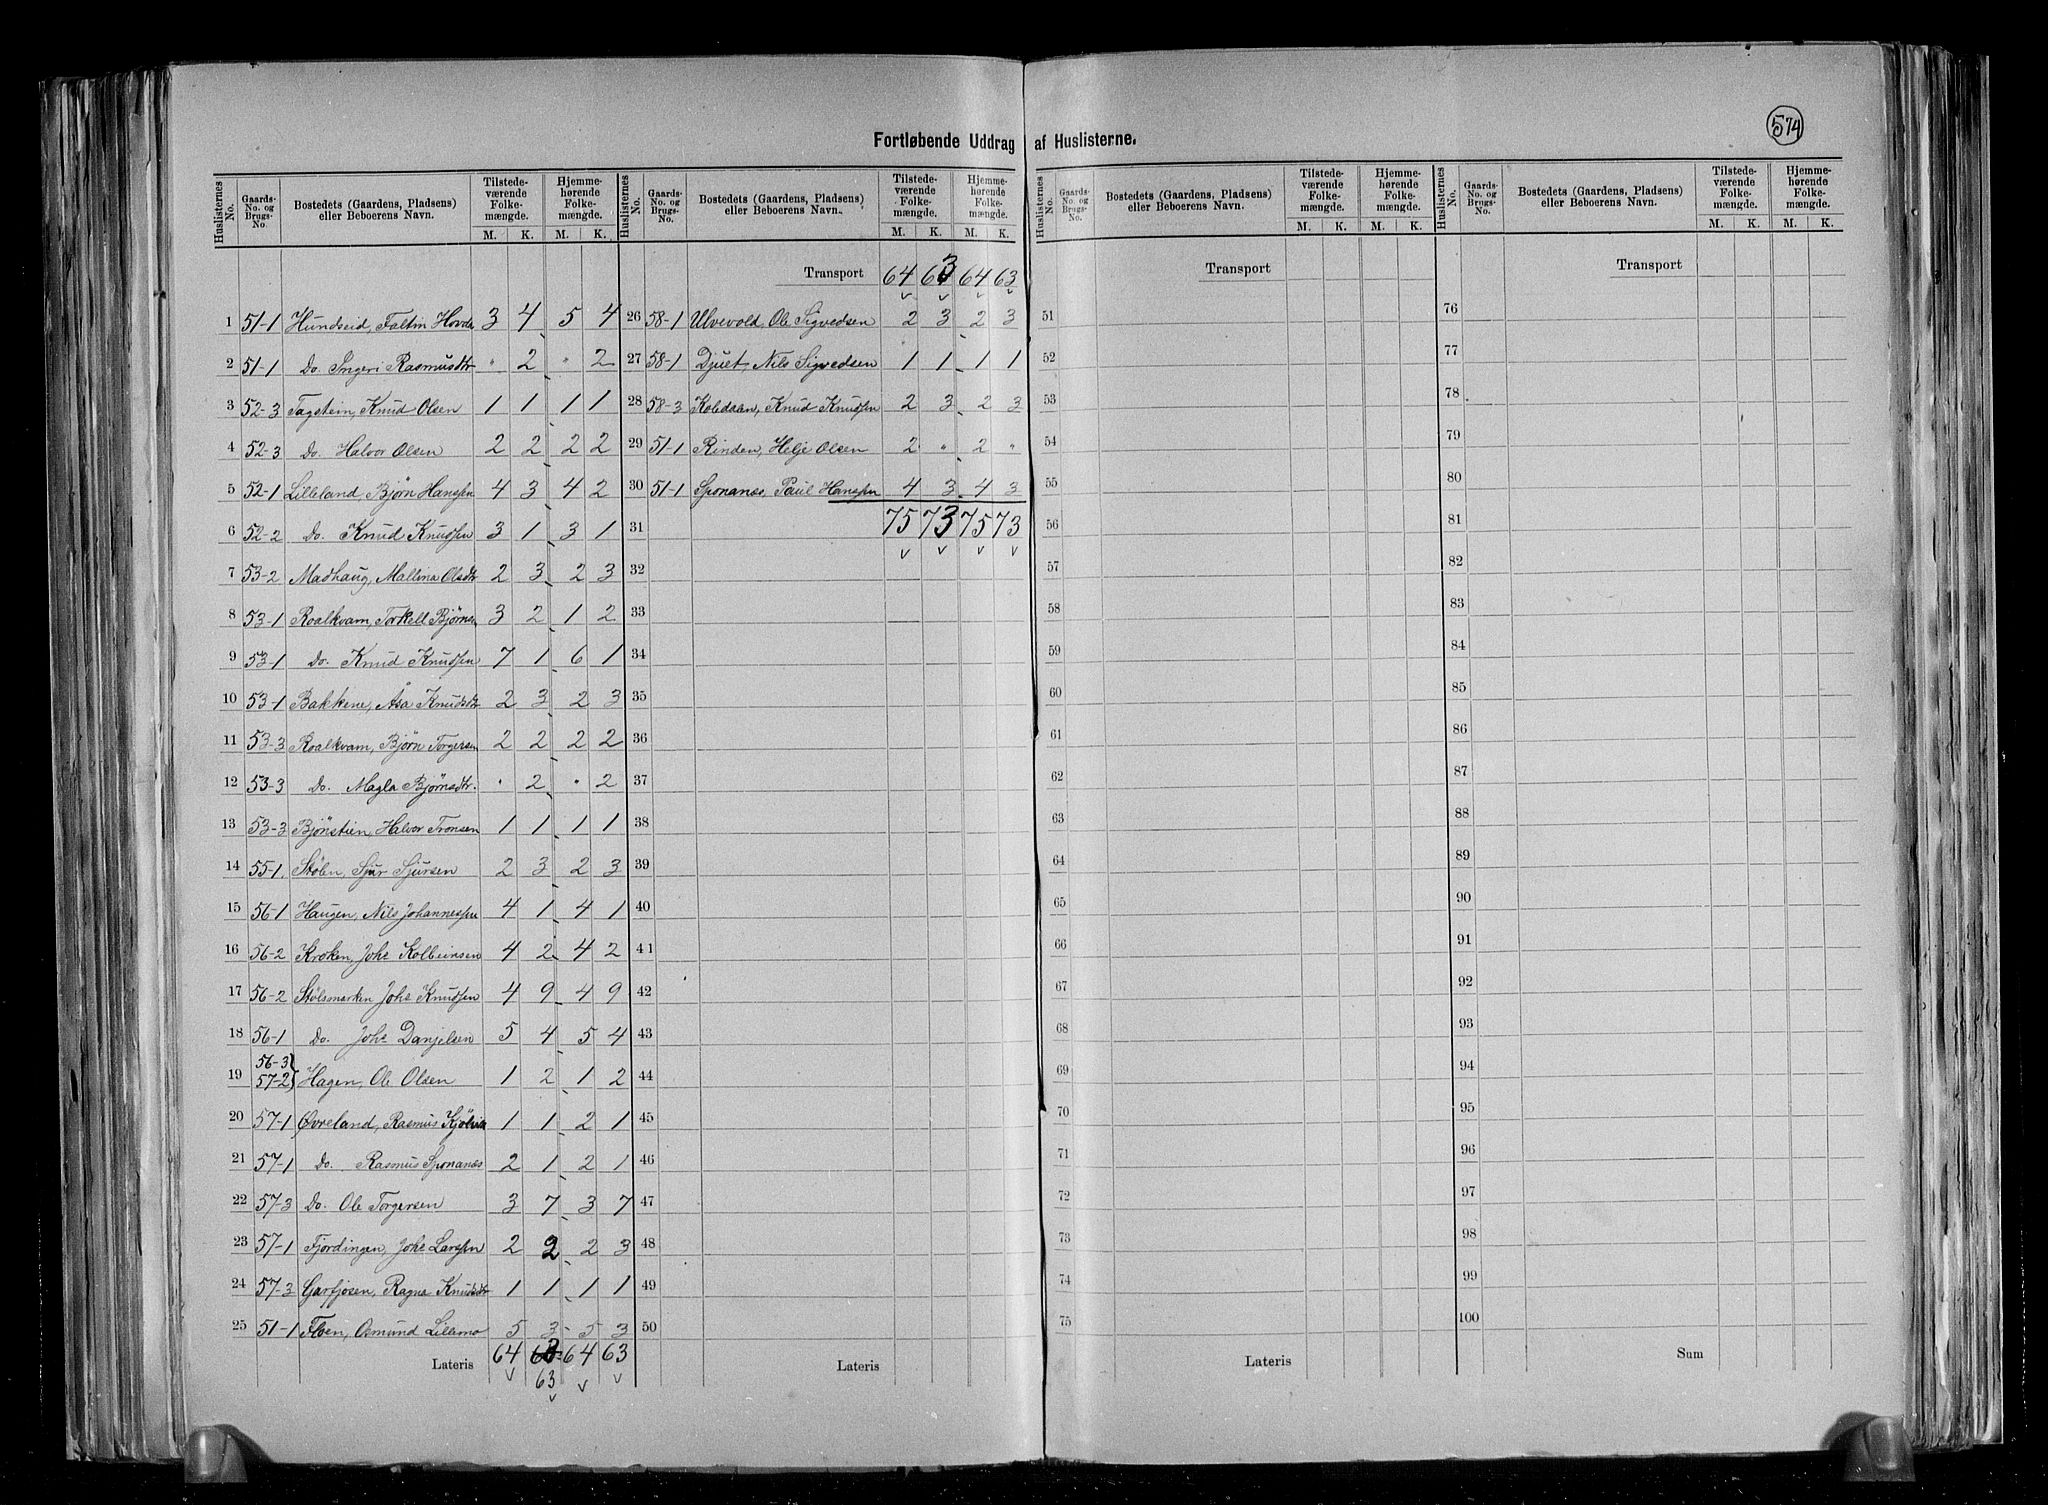 574
Fortløbende Uddrag af Huslisterne.
Huslisternes No. Gaards-No. og Brugs-No. Bostedets (Gaardens, Pladsen) eller Beboerens Navn. Tilstedeværende Folkemængde. Hjemmehørende Folkemængde.
M. K. M. K.
1 51-1 Hundseid, Faltin Hovda 3 4 5 4
2 51-1 Do. Ingeri Rasmusdtr " 2 " 2
3 52-3 Tagstein, Knud Olsen 1 1 1 1
4 52-3 Do. Halvor Olsen 2 2 2 2
5 52-1 Lilleland, Bjørn Hanssen 4 3 4 2
6 52-2 Do. Knud Knudsen 3 1 3 1
7 53-2 Madhaug, Mallina Olsdtr 2 3 2 3
8 53-1 Roalkvam, Torkell Bjørnsen 3 2 1 2
9 53-1 Do. Knud Knudsen 7 1 6 1
10 53-1 Bakkene, Åsa Knudsdtr 2 3 2 3
11 53-3 Roalkvam, Bjørn Torgersen 2 2 2 2
12 53-3 Do. Magla Bjørnsdtr. " 2 " 2
13 53-3 Bjönstien, Halvor Tronsen 1 1 1 1
14 55-1. Stölen, Sjur Sjursen 2 3 2 3
15 56-1 Haugen, Nils Johannessen 4 1 4 1
16 56-2 Kroken, Johs Kolbeinsen 4 2 4 2
17 56-2 Stölsmarken Johs Knudsen 4 9 4 9
18 56-1 Do. Johs Danjelsen 5 4 5 4
19 56-3 57-2} Hagen, Ole Olsen 1 2 1 2
20 57-1 Øvreland, Rasmus 1 1 2 1
21 57-1 Do. Rasmus Sponanes 2 1 2 1
22 57-3 Do. Ole Torgersen 3 7 3 7
23 57-1 Fjordingen, Johs Larssen 2 2 2 3
24 57-3 Garfjosen, Ragna Knudsdtr 1 1 1 1
25 51-1 Floen, Osmund Lillemo 5 3 5 3
Lateris 64 63 64 63
63
Huslisternes No. Gaards-No. og Brugs-No. Bostedets (Gaardens, Pladsen) eller Beboerens Navn. Tilstedeværende Folkemængde. Hjemmehørende Folkemængde.
M. K. M. K.
Transport 64 63 64 63
26 58-1 Ulvevold, Ole Sigvedsen 2 3 2 3
27 58-1 Djuet, Nils Sigvedsen 1 1 1 1
28 58-3 Kaledaen, Knud Knudsen 2 3 2 3
29 51-1 Rinden, Helje Olsen 2 " 2 "
30 51-1 Sponanes, Paul Hanssen 4 3 4 3
31 75 73 75 73
32
33
34
35
36
37
38
39
40
41
42
43
44
45
46
47
48
49
50
Lateris
Huslisternes No. Gaards-No. og Brugs-No. Bostedets (Gaardens, Pladsen) eller Beboerens Navn. Tilstedeværende Folkemængde. Hjemmehørende Folkemængde.
M. K. M. K.
Transport
51
52
53
54
55
56
57
58
59
60
61
62
63
64
65
66
67
68
69
70
71
72
73
74
75
Lateris
Huslisternes No. Gaards-No. og Brugs-No. Bostedets (Gaardens, Pladsen) eller Beboerens Navn. Tilstedeværende Folkemængde. Hjemmehørende Folkemængde.
M. K. M. K.
Transport
76
77
78
79
80
81
82
83
84
85
86
87
88
89
90
91
92
93
94
95
96
97
98
99
100
Sum